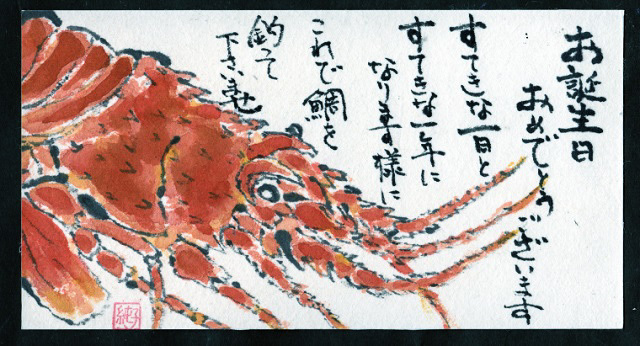 お誕生日
おめでとうございます
すてきな一日と
すてきな一年に
なります様に
これで鯛を
釣って
下さいませ